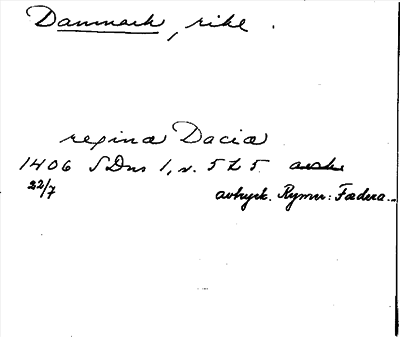 Danmark, rike.
regina Dacia
1406 SDns 1, n. 525
22/7 avtryck. Rymer: Fædera...